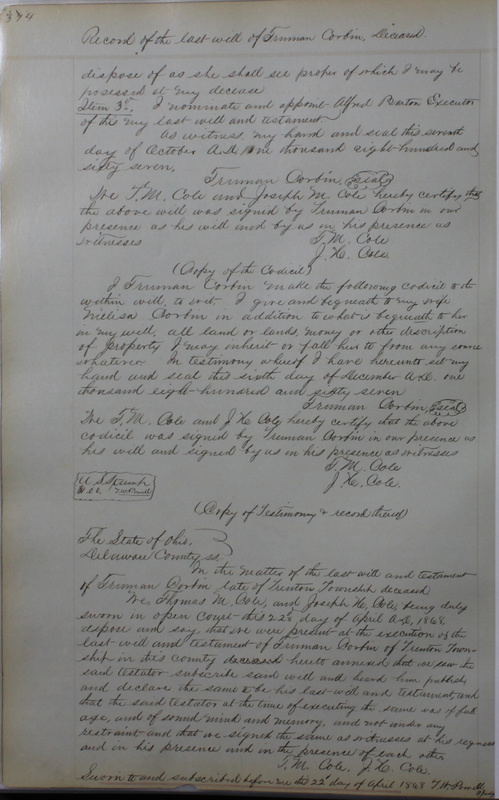 344
Record of the last will of Truman Corbin, Deceased.
dispose of as she shall see proper of which I may be
posessed at my decease
Item 3d. I nominate and appoint Alfred Buxton Executor
of this my last will and testament
As witness, my hand and seal this seventh
day of October A.D. One thousand eight-hundred and
sixty seven,
Truman Corbin, (seal)
We T.M. Cole and Joseph M Cole hereby certify that
the above will was signed by Truman Corbin in our
presence as his will and by us in his presence as
witnesses T.M. Cole
J.H. Cole
(Copy of the Codicil)
I Truman Corbin make the following codicil to the
within will, to wit. I give and bequeath to my wife
Melisa Corbin in addition to what is bequeath to her
in my will, all land or lands, money or other discription
of property I may inherit or fall heir to from any source
whatever. In testimony whereof I have hereunto set my
hand and seal this sixth day of December A.D. one
thousand eight-hundred and sixty seven
Truman Corbin, (seal)
We T.M. Cole and J.H. Cole, hereby certify that the above
codicil was signed by Truman Corbin in our presence as
his will and signed by us in his presence as witnesses
T.M. Cole
J.H. Cole.
U.S. Stamp
(Copy of Testimony & record thereof)
The State of Ohio,
Delaware County ss.
In the matter of the last will and testament
of Truman Corbin late of Trenton Township deceased
We, Thomas M. Cole, and Joseph H. Cole, being duly
sworn in open Court this 22d day of April A.D. 1868,
depose and say, that we were present at the execution of the
last will and testament of Truman Corbin of Trenton Town-
ship in this county deceased hereto annexed that we saw the
said testator subscribe said will and heard him publish
and declare the same to be his last will and testament, and
that the said testator at the time of executing the same was of full
age, and of sound mind and memory, and not under any
restraint and that we signed the same as witnesses at his request
and in his presence and in the presence of each other
T.M. Cole, J.H. Cole.
Sworn to and subscribed before me this 22d day of April 1868 T.W. Powell